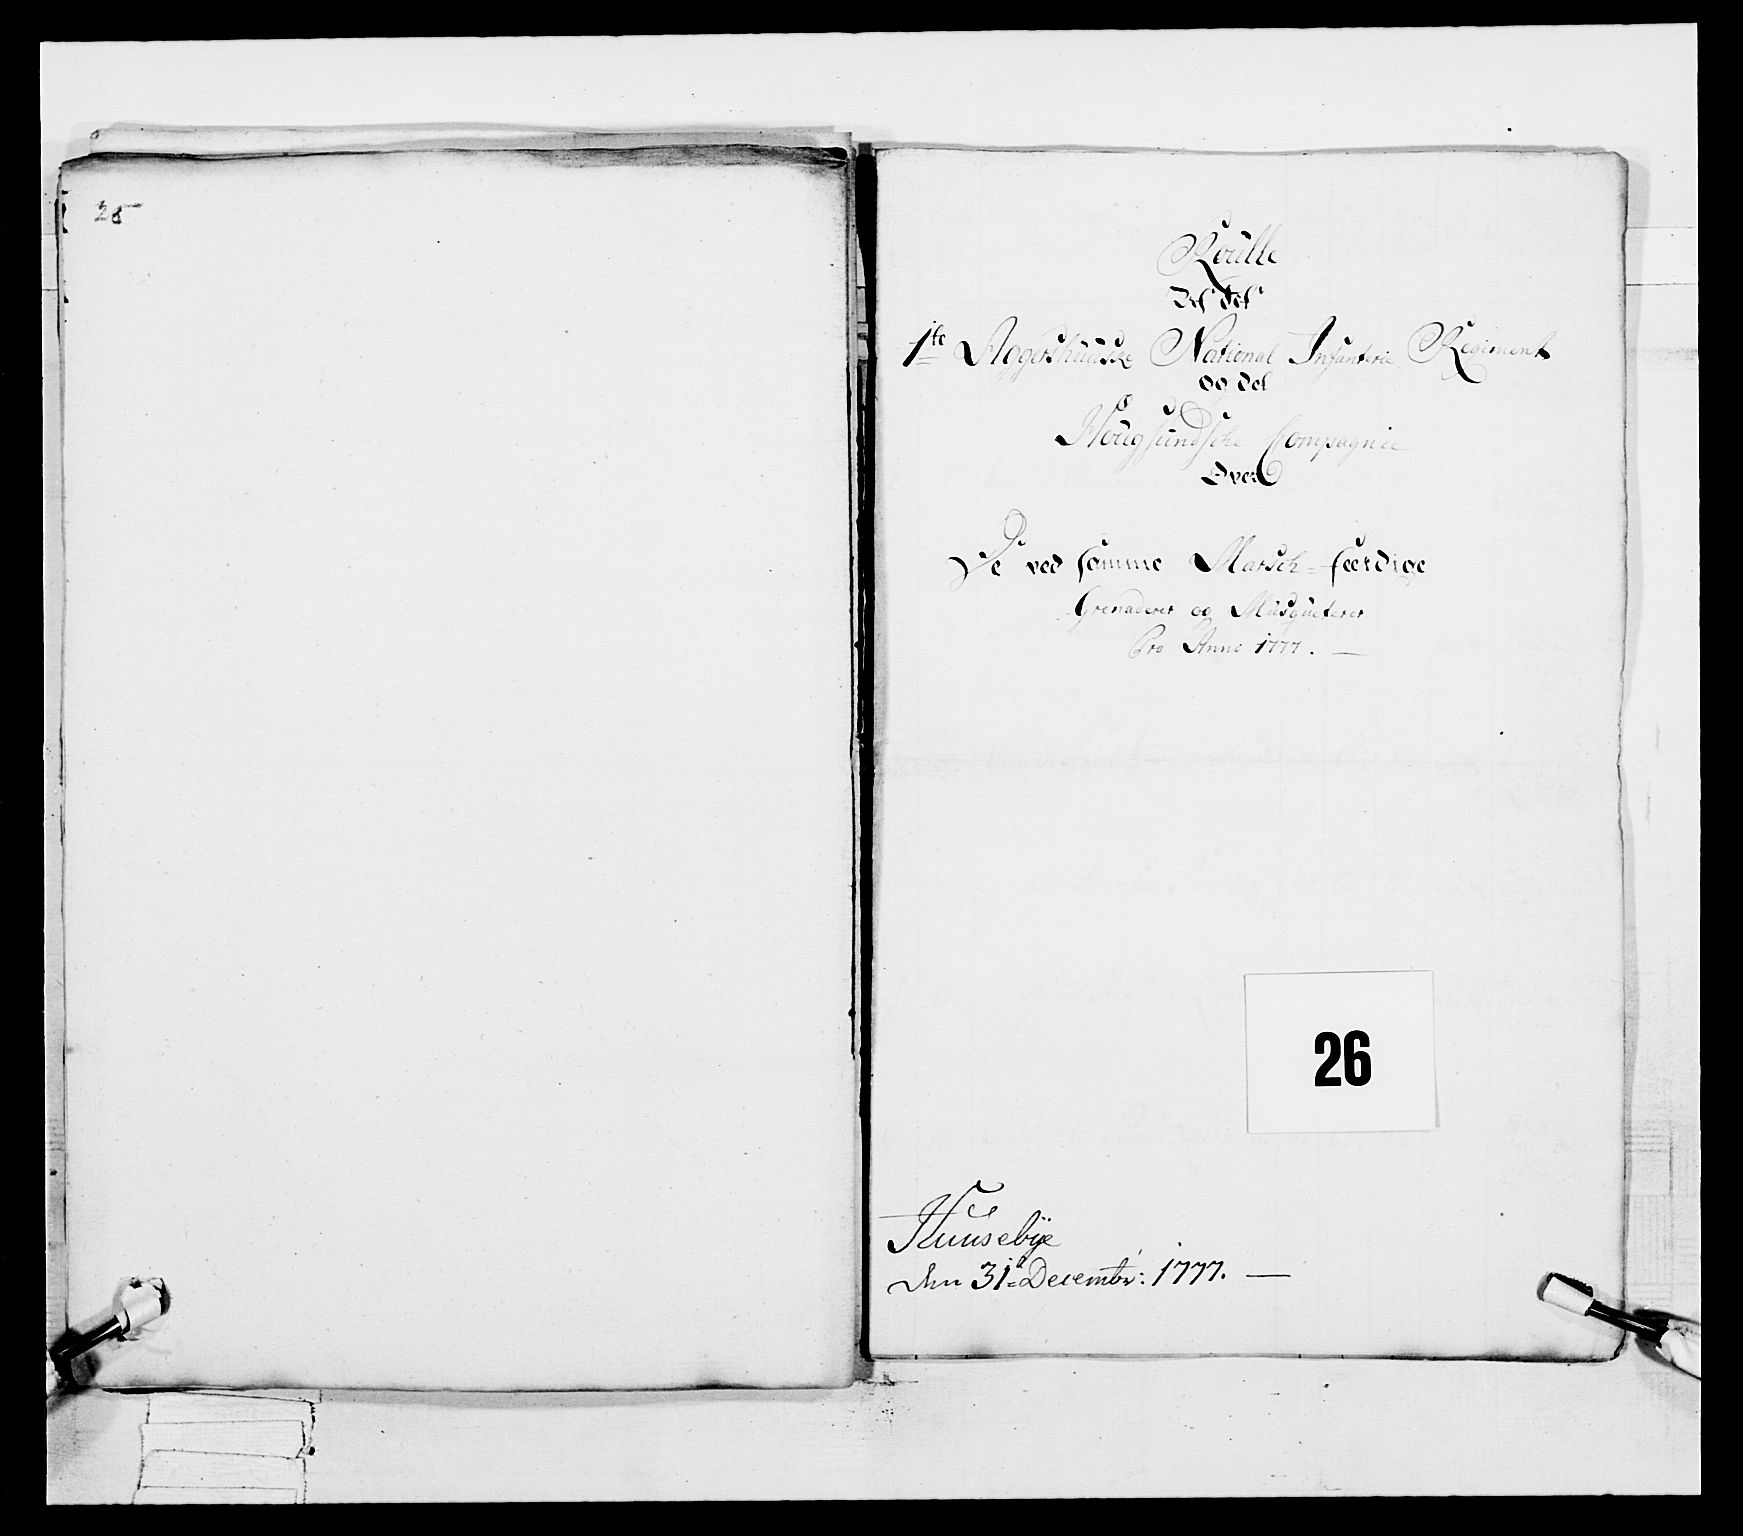 26
Roulle
Ved det
1te Aggershuuske National Infanterie Regiment
og det
Hougsundske Compagnie
Over
De ved samme Marsch-feerdige
Grenaderer og Musqueterer
Pro Anno 1777. —
26
Huusebÿe
den 31te Decembr: 1777. —